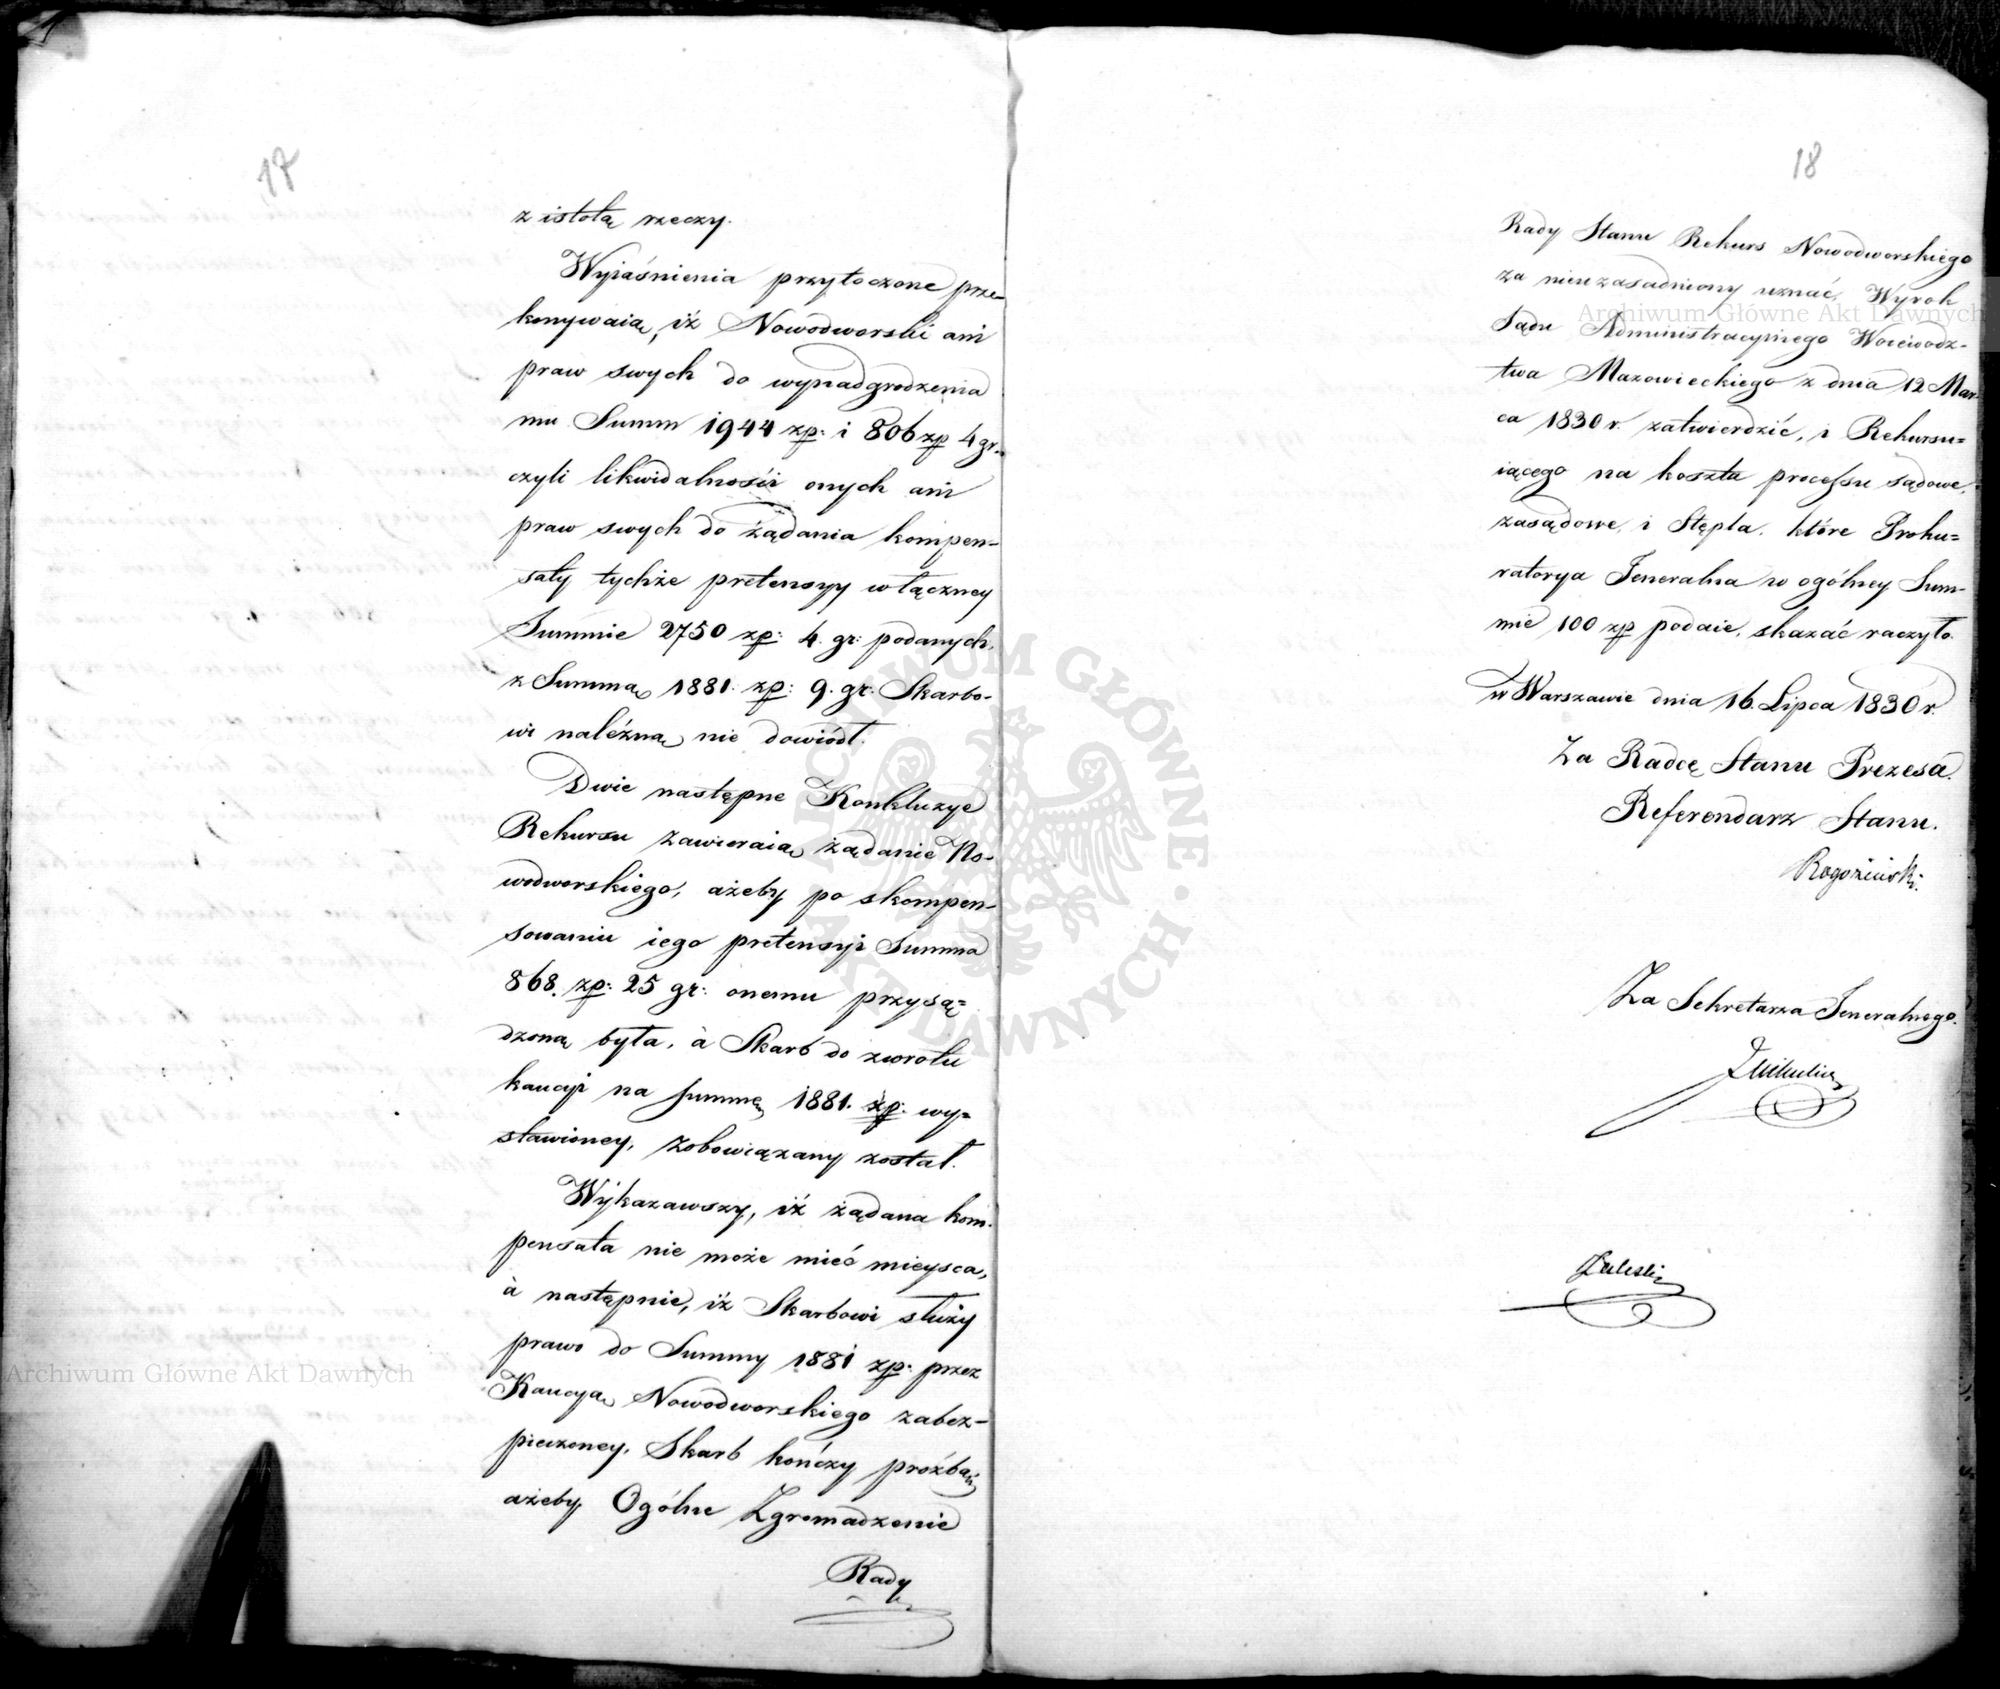 17
z istotą rzeczy.
Wyiaśnienia przytoczone prze-
konywaią, iż Nowodworski ani
praw swych do wynadgrodzenia
mu Summ 1944 zp: i 806 zp 4 gr.
czyli likwidalności onych ani
praw swych do żądania kompen-
saty tychże pretensyy w łączney
Summie 2750 zp: 4. gr: podanych,
z Summą 1881: zp: 9. gr: Skarbo-
wi należną nie dowiódł.
Dwie następne Konkluzye
Rekursu zawieraią żądanie No-
wodworskiego, ażeby po skompen-
sowaniu iego pretensyi Summa
868. zp: 25 gr: onemu przysą=
dzoną była, à Skarb do zwrotu
kaucyi na summę 1881. zp: wy=
stawioney, zobowiązany został.
Wykazawszy, iż żądana kom-
pensata nie może mieć mieysca,
à następnie, iż Skarbowi służy
prawo do Summy 1881 zp: przez
Kaucyą Nowodworskiego zabez-
pieczoney, Skarb kończy proźbą,
ażeby Ogólne Zgromadzenie
Rady
18
Rady Stanu Rekurs Nowodworskiego
za nieuzasadniony uznać, Wyrok
Sądu Administracyinego Woiewodz-
twa Mazowieckiego z dnia 12 Mar-
ca 1830 r. zatwierdzić, i Rekursu=
iącego na koszta processu sądowe,
zasądowe, i Stępla, które Proku=
ratorya Jeneralna w ogólney Sum-
mie 100 zp podaie, skazać raczyło.
w Warszawie dnia 16. Lipca 1830 r.
Za Radcę Stanu Prezesa.
Referendarz Stanu.
Rogoziński.
Za Sekretarza Jeneralnego.
Zaleski
Archiwum Główne Akt Dawnych
Archiwum Główne Akt Dawnych
ARCHIWUM GŁÓWNE · AKT DAWNYCH ·